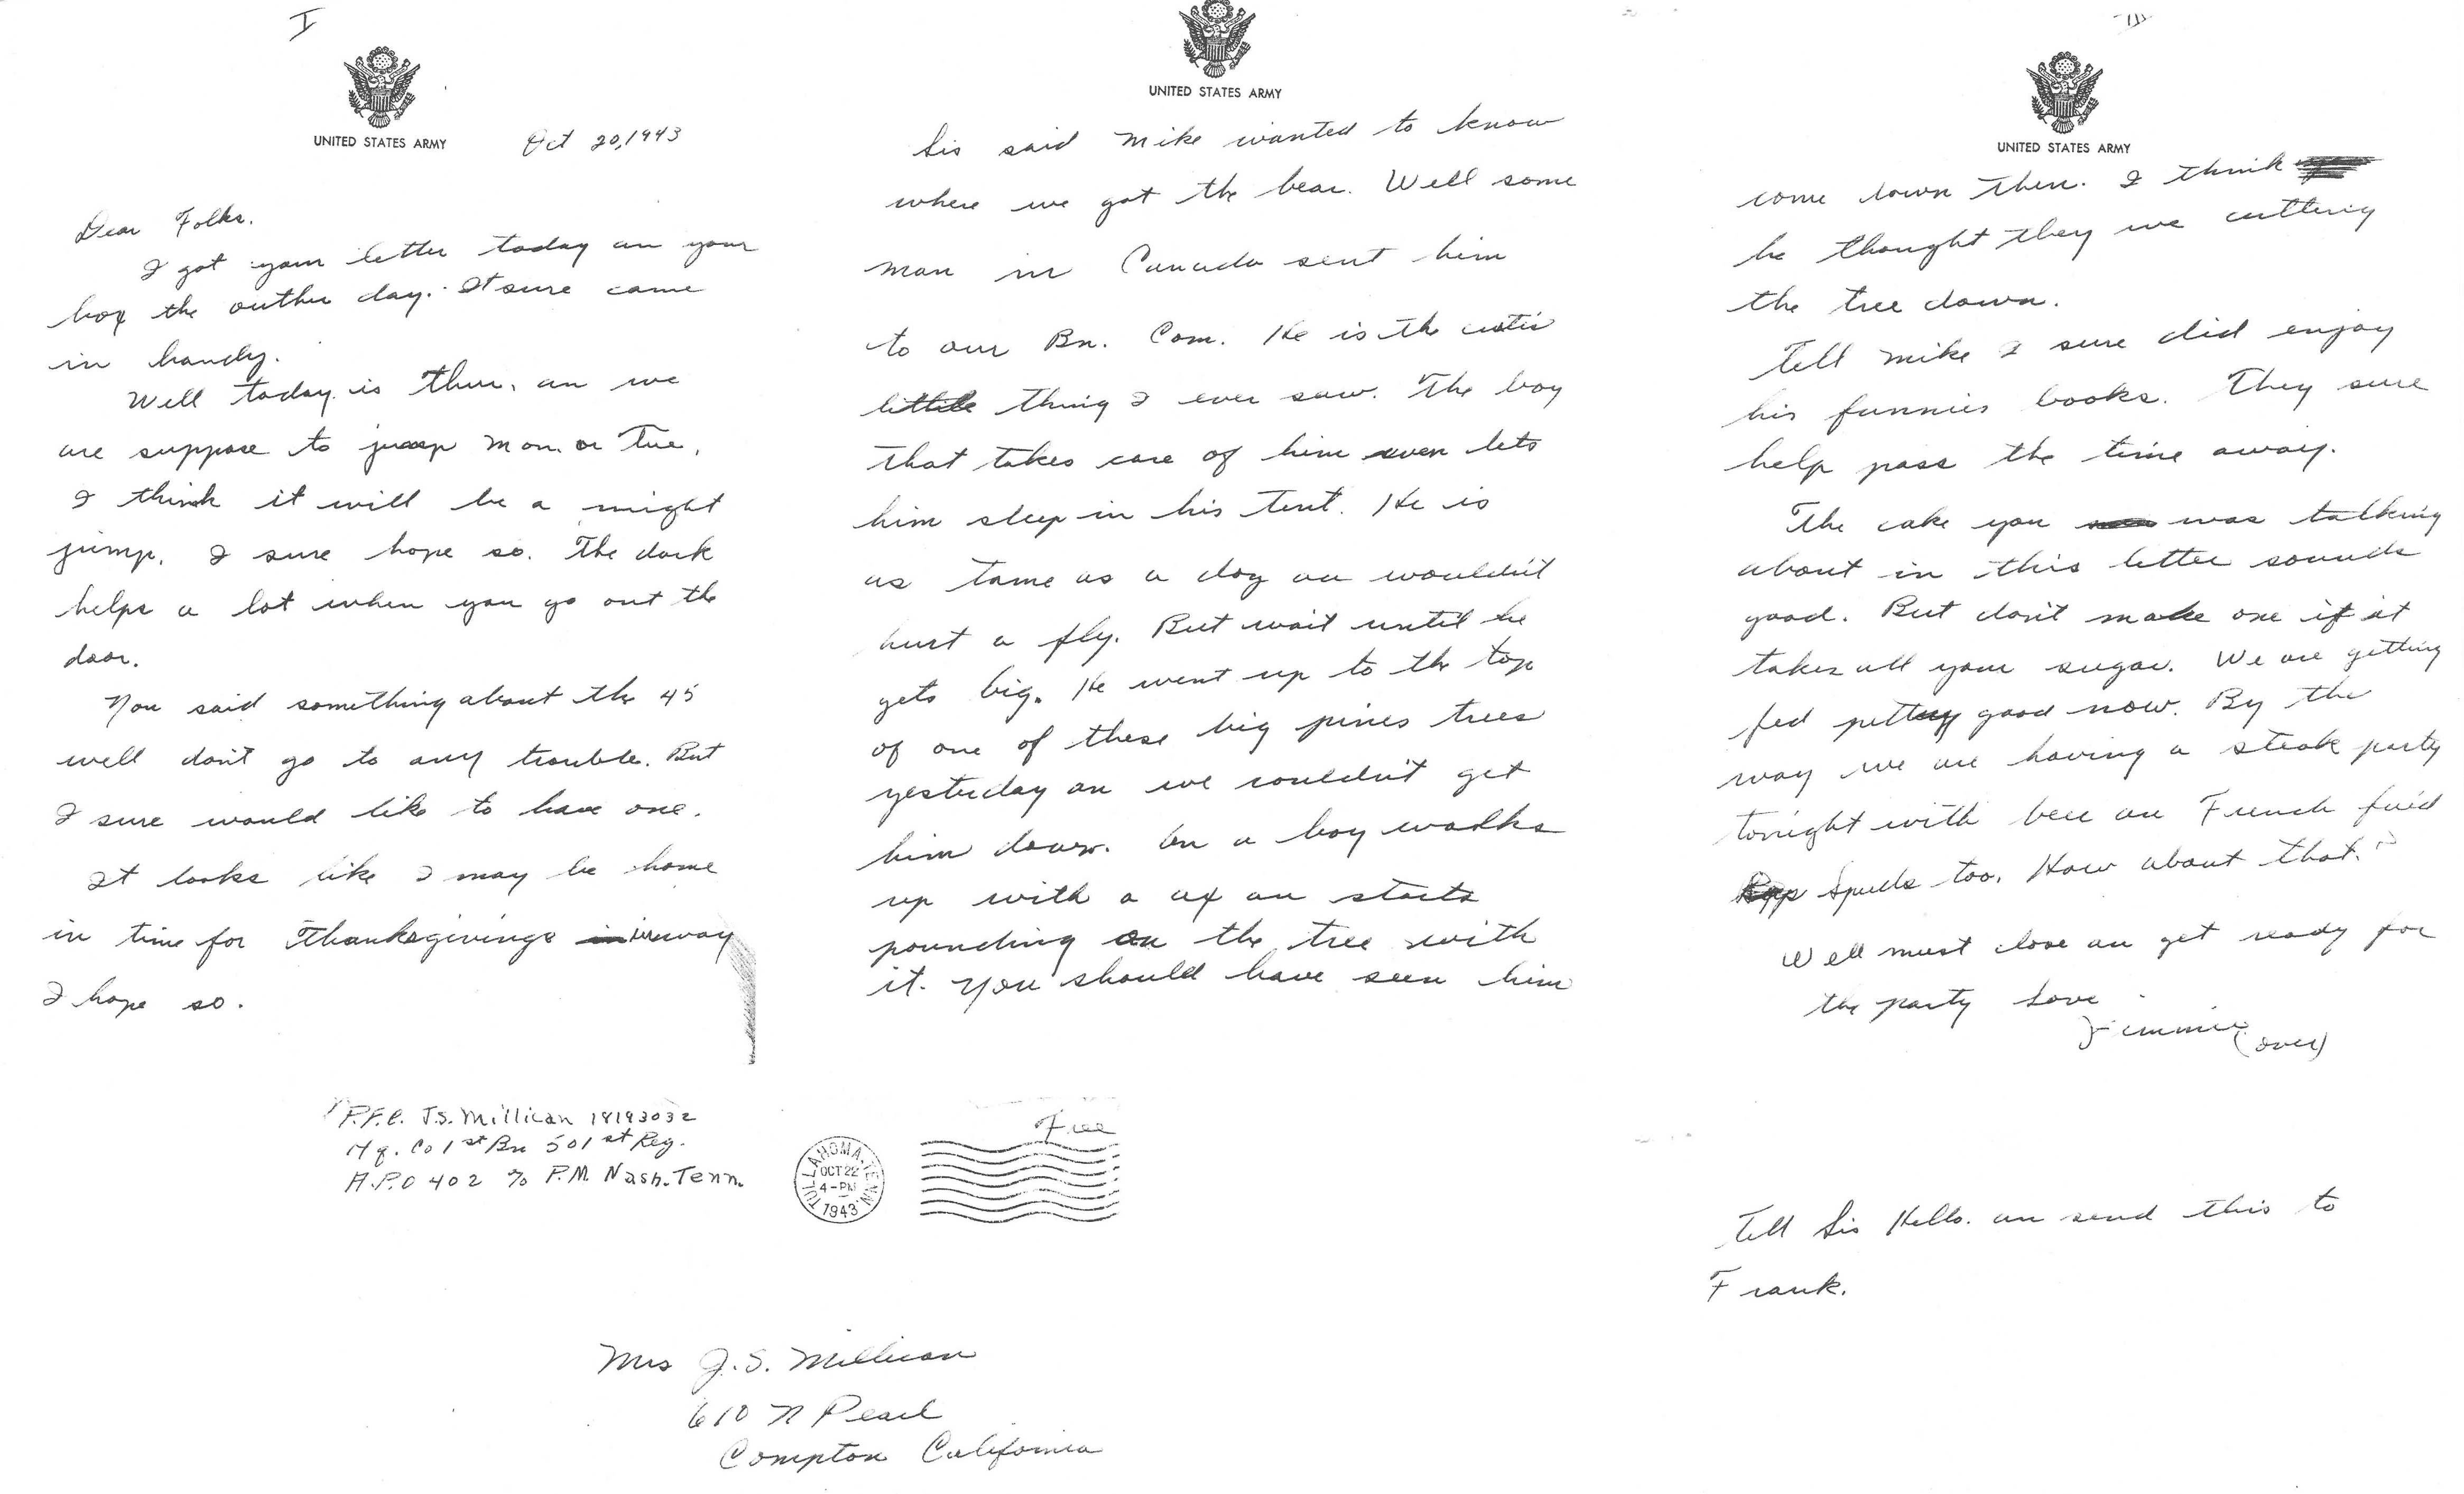 I
UNITED STATES ARMY
Oct 20, 1943
Dear Folks.
I got your letter today an your
box the outher day. It sure came
in handy.
Well today is Thur. an we
are suppose to jump Mon. or Tue.
I think it will be a might
jump. I sure hope so. The dark
helps a lot when you go out the
door.
You said something about the 45
well don't go to any trouble. But
I sure would like to have one.
It looks like I may be home
in time for Thanksgivings
I hope so.
UNITED STATES ARMY
Sis said Mike wanted to know
where we got the bear. Well some
man in Canada sent him
to our Bn. Com. He is the
little thing I ever saw. The boy
that takes care of him even lets
him sleep in his tent. He is
as tame as a dog an wouldn't
hurt a fly. But wait until he
gets big. He went up to the top
of one of these big pines trees
yesterday an we couldn't get
him down. So a boy walks
up with a ax an starts
pounding on the tree with
it. You should have seen him
III
UNITED STATES ARMY
come down then. I think
he thought they we cutting
the tree down.
Tell Mike I sure did enjoy
his funnies books. They sure
help pass the time away.
The cake you was talking
about in this letter sounds
good. But don't make one if it
takes all your sugar. We are getting
fed pretty good now. By the
way we are having a steak party
tonight with beer an French fried
Spuds too. How about that.
Well must close an get ready for
the party Love
Jimmie
(over)
P.F.C. J.S. Millican 18193032
Hq. Co 1st Bn 501st Reg.
A.P.O 402 % P.M. Nash. Tenn.
TULLAHOMA, TENN.
OCT 22
4-PM
1943
Free
Mrs J.S. Millican
610 N Pearl
Compton California
Tell Sis Hello. an send this to
Frank.